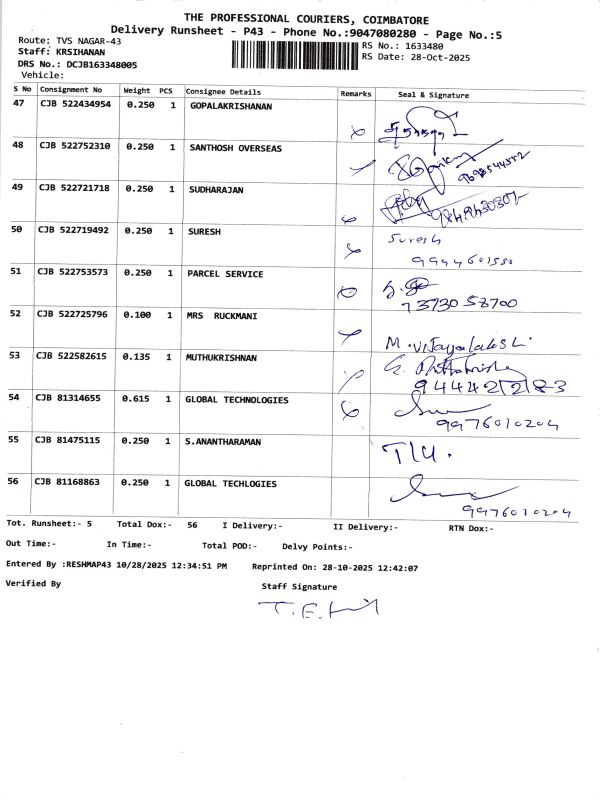 THE PROFESSIONAL COURIERS, COIMBATORE
Delivery Runsheet - P43 - Phone No.:9047080280 - Page No.:5
Route: TVS NAGAR-43 RS No.: 1633480
Staff: KRSIHANAN RS Date: 28-Oct-2025
DRS No.: DCJB163348005
Vehicle:
S No Consignment No Weight PCS Consignee Details Remarks Seal & Signature
47 CJB 522434954 0.250 1 GOPALAKRISHANAN
48 CJB 522752310 0.250 1 SANTHOSH OVERSEAS
49 CJB 522721718 0.250 1 SUDHARAJAN
50 CJB 522719492 0.250 1 SURESH Suresh
51 CJB 522753573 0.250 1 PARCEL SERVICE
73730 58700
52 CJB 522725796 0.100 1 MRS RUCKMANI
M. Vijayalaksh.
53 CJB 522582615 0.135 1 MUTHUKRISHNAN
944421 2183
54 CJB 81314655 0.615 1 GLOBAL TECHNOLOGIES
9976010204
55 CJB 81475115 0.250 1 S.ANANTHARAMAN
56 CJB 81168863 0.250 1 GLOBAL TECHLOGIES
9976010204
Tot. Runsheet:- 5 Total Dox:- 56 I Delivery:- II Delivery:- RTN Dox:-
Out Time:- In Time:- Total POD:- Delvy Points:-
Entered By :RESHMAP43 10/28/2025 12:34:51 PM Reprinted On: 28-10-2025 12:42:07
Verified By Staff Signature